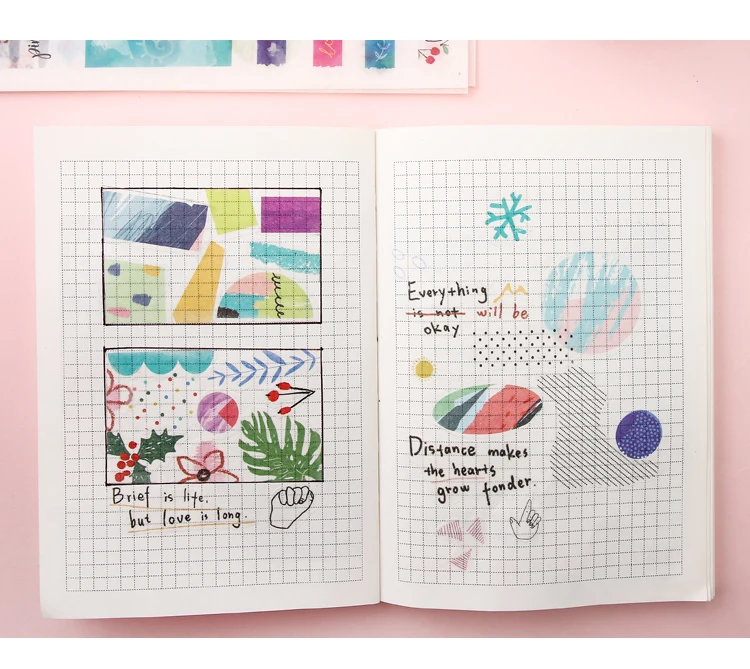 Brief is life,
but love is long.
Everything
is not will be
okay
Distance makes
the hearts
grow fonder.